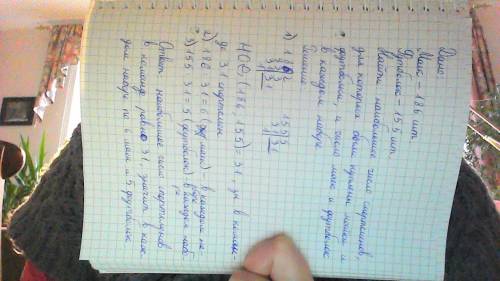 Дано:
Маек - 186 шт.
Футболок - 155 шт.
Найти наибольшее число спортсменов,
для которых были куплены майки и
футболки, и число маек и футболок
в каждом наборе.
Решение
1) 186 2 155 5
93 3 31 31
31 31 1
1
НОД (186, 155) = 31,
31 спортсмен
2) 186 : 31 = 6 (маек) в каждом на-
3) 155 : 31 = 5 (футболок) в каждом набо-
ре
Ответ: наибольшее число спортсменов
в команде равно 31, значит в каж
дом наборе по 6 маек и 5 футболок